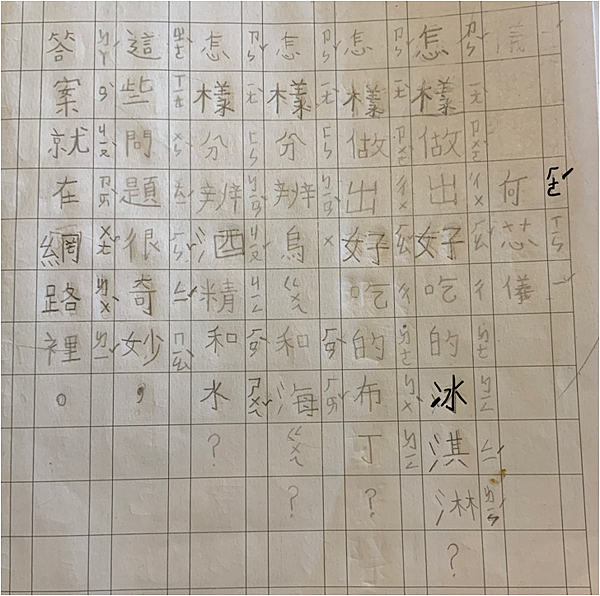 何芯儀
怎樣做出好吃的冰淇淋?
怎樣做出好吃的布丁?
怎樣分辨烏ㄍㄨㄟ和海ㄍㄨㄟ?
怎樣分辨酒精和水?
這些問題很奇妙,
答案就在網路裡。